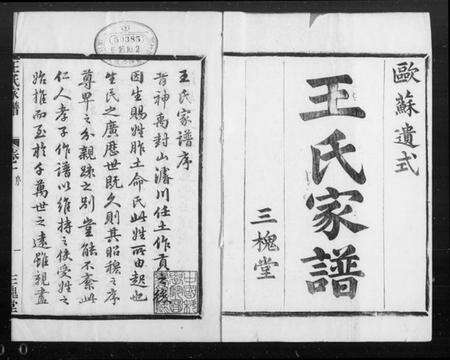 歐蘇遺式
王氏家譜
三槐堂
王氏家譜序
昔神禹封山濬川任土作貢之後
因生賜姓胙土命氏此姓所由起也
生民之廣歷世既久則其昭穆之序
尊卑之分親疎之別豈能不紊此
仁人孝子作譜以維持之使受姓之
始推而至於千萬世之遠雖親盡
王氏家譜
卷一
序
一
三槐堂
50385